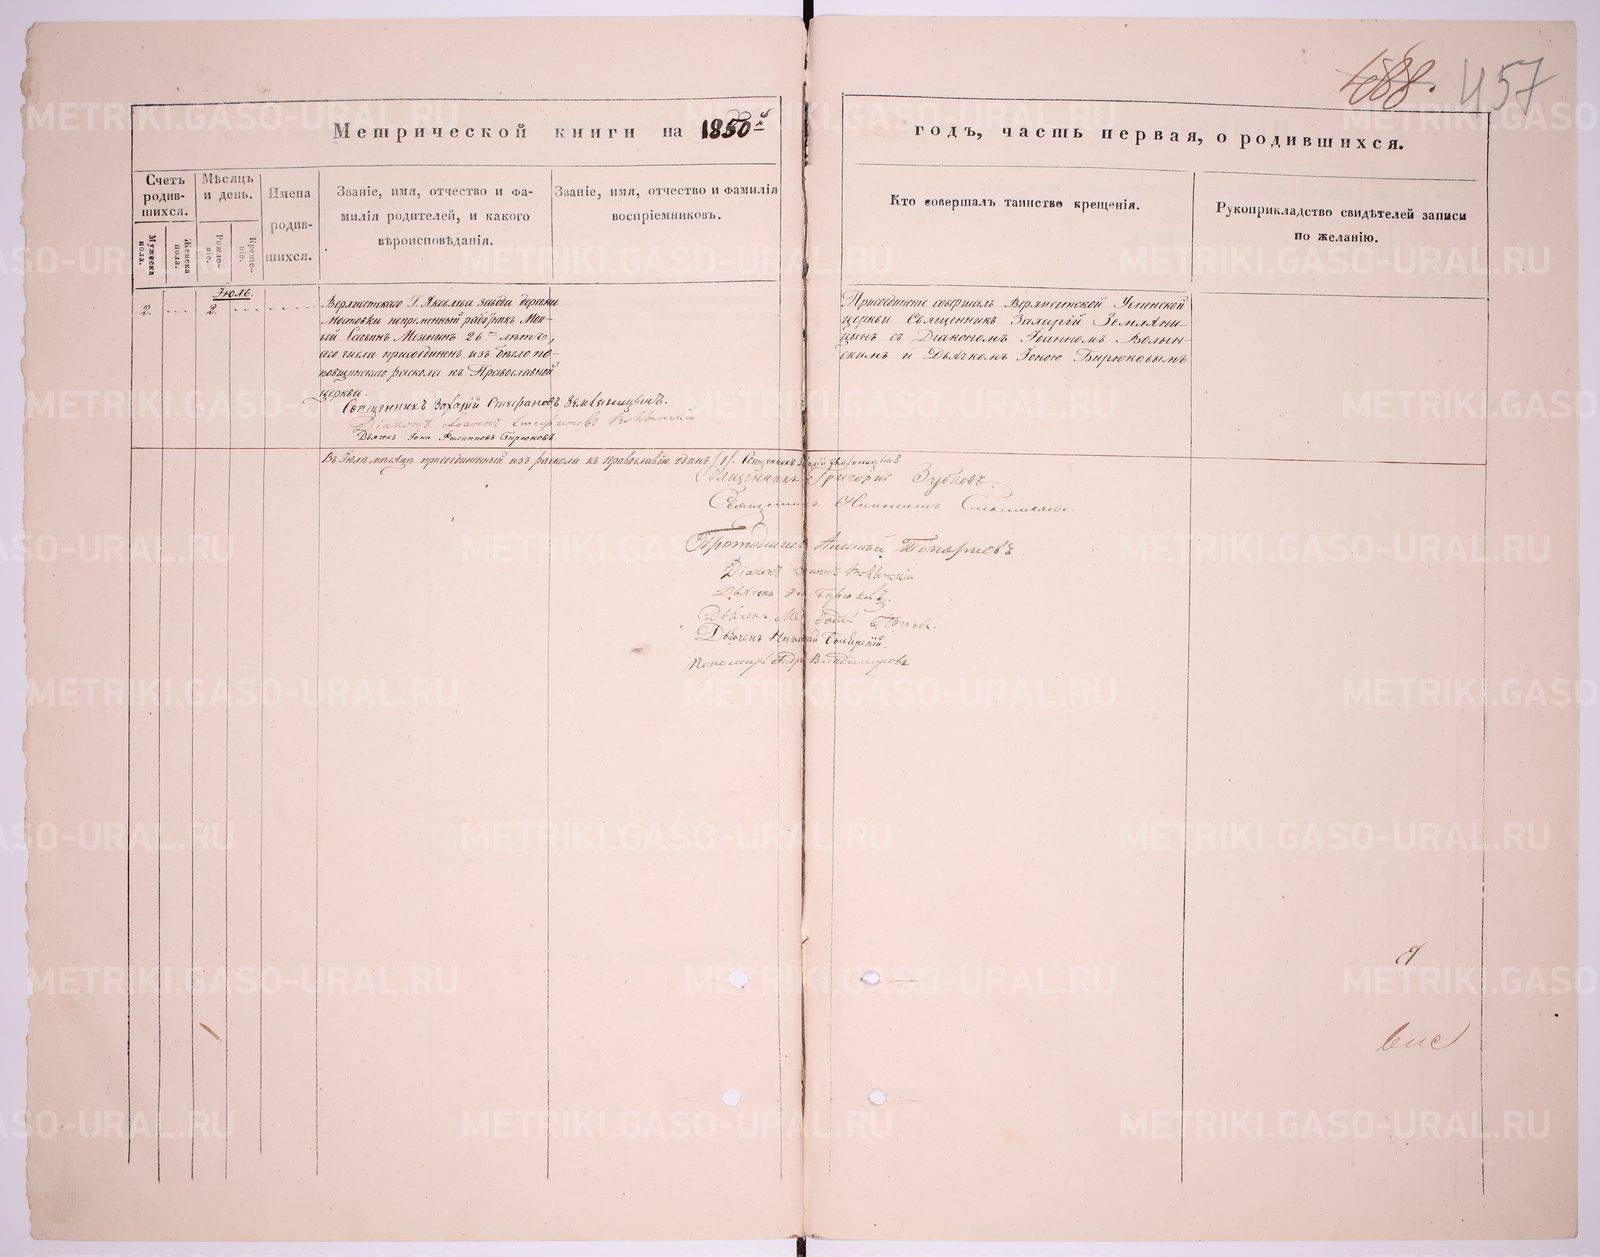 488. 457
Метрической книги на 1850й
годъ, часть первая, о родившихся.
Счетъ родив-шихся.
Мужеска пола.
Женска пола.
Мѣсяцъ и день.
Рожде-ніе.
Креще-ніе.
Имена родив-шихся.
Званіе, имя, отчество и фа-
милія родителей, и какого
вѣроисповѣданія.
Званіе, имя, отчество и фамилія
воспріемниковъ.
Кто совершалъ таинство крещенія.
Рукоприкладство свидѣтелей записи
по желанію.
Іюль.
2. 2.
Верхисетскаго Г. Яковлева завода деревни
Мостовки непременный работникъ Мои-
сей Саввинъ Мезнинъ 26ти лѣтъ,
сего числа присоединенъ изъ бѣгло по-
повщинскаго раскола къ Православной
церкви.
Священникъ Захарій Стефановъ Земляницынъ.
Діаконъ Іоаннъ Стефановъ Волынскій
Дьячекъ Іона Филипповъ Бирюковъ
Присоединеніе совершалъ Верхисетской Успенской
церкви Священникъ Захарій Земляни-
цынъ съ Діакономъ Іоанномъ Волын-
скимъ и Дьячкомъ Іоною Бирюковымъ
Въ Іюлѣ мѣсяцѣ присоединенный изъ раскола къ православію одинъ /1/. Священникъ Захарій Земляницынъ
Священникъ Григорій Зубковъ.
Священникъ Ипполитъ
Аникій Топорковъ
Діаконъ Іоаннъ Волынскій
Дьячекъ Іона Бирюковъ.
Дьячекъ Меѳодій Поповъ.
Дьячекъ Николай
Пономарь Андрей Владимировъ